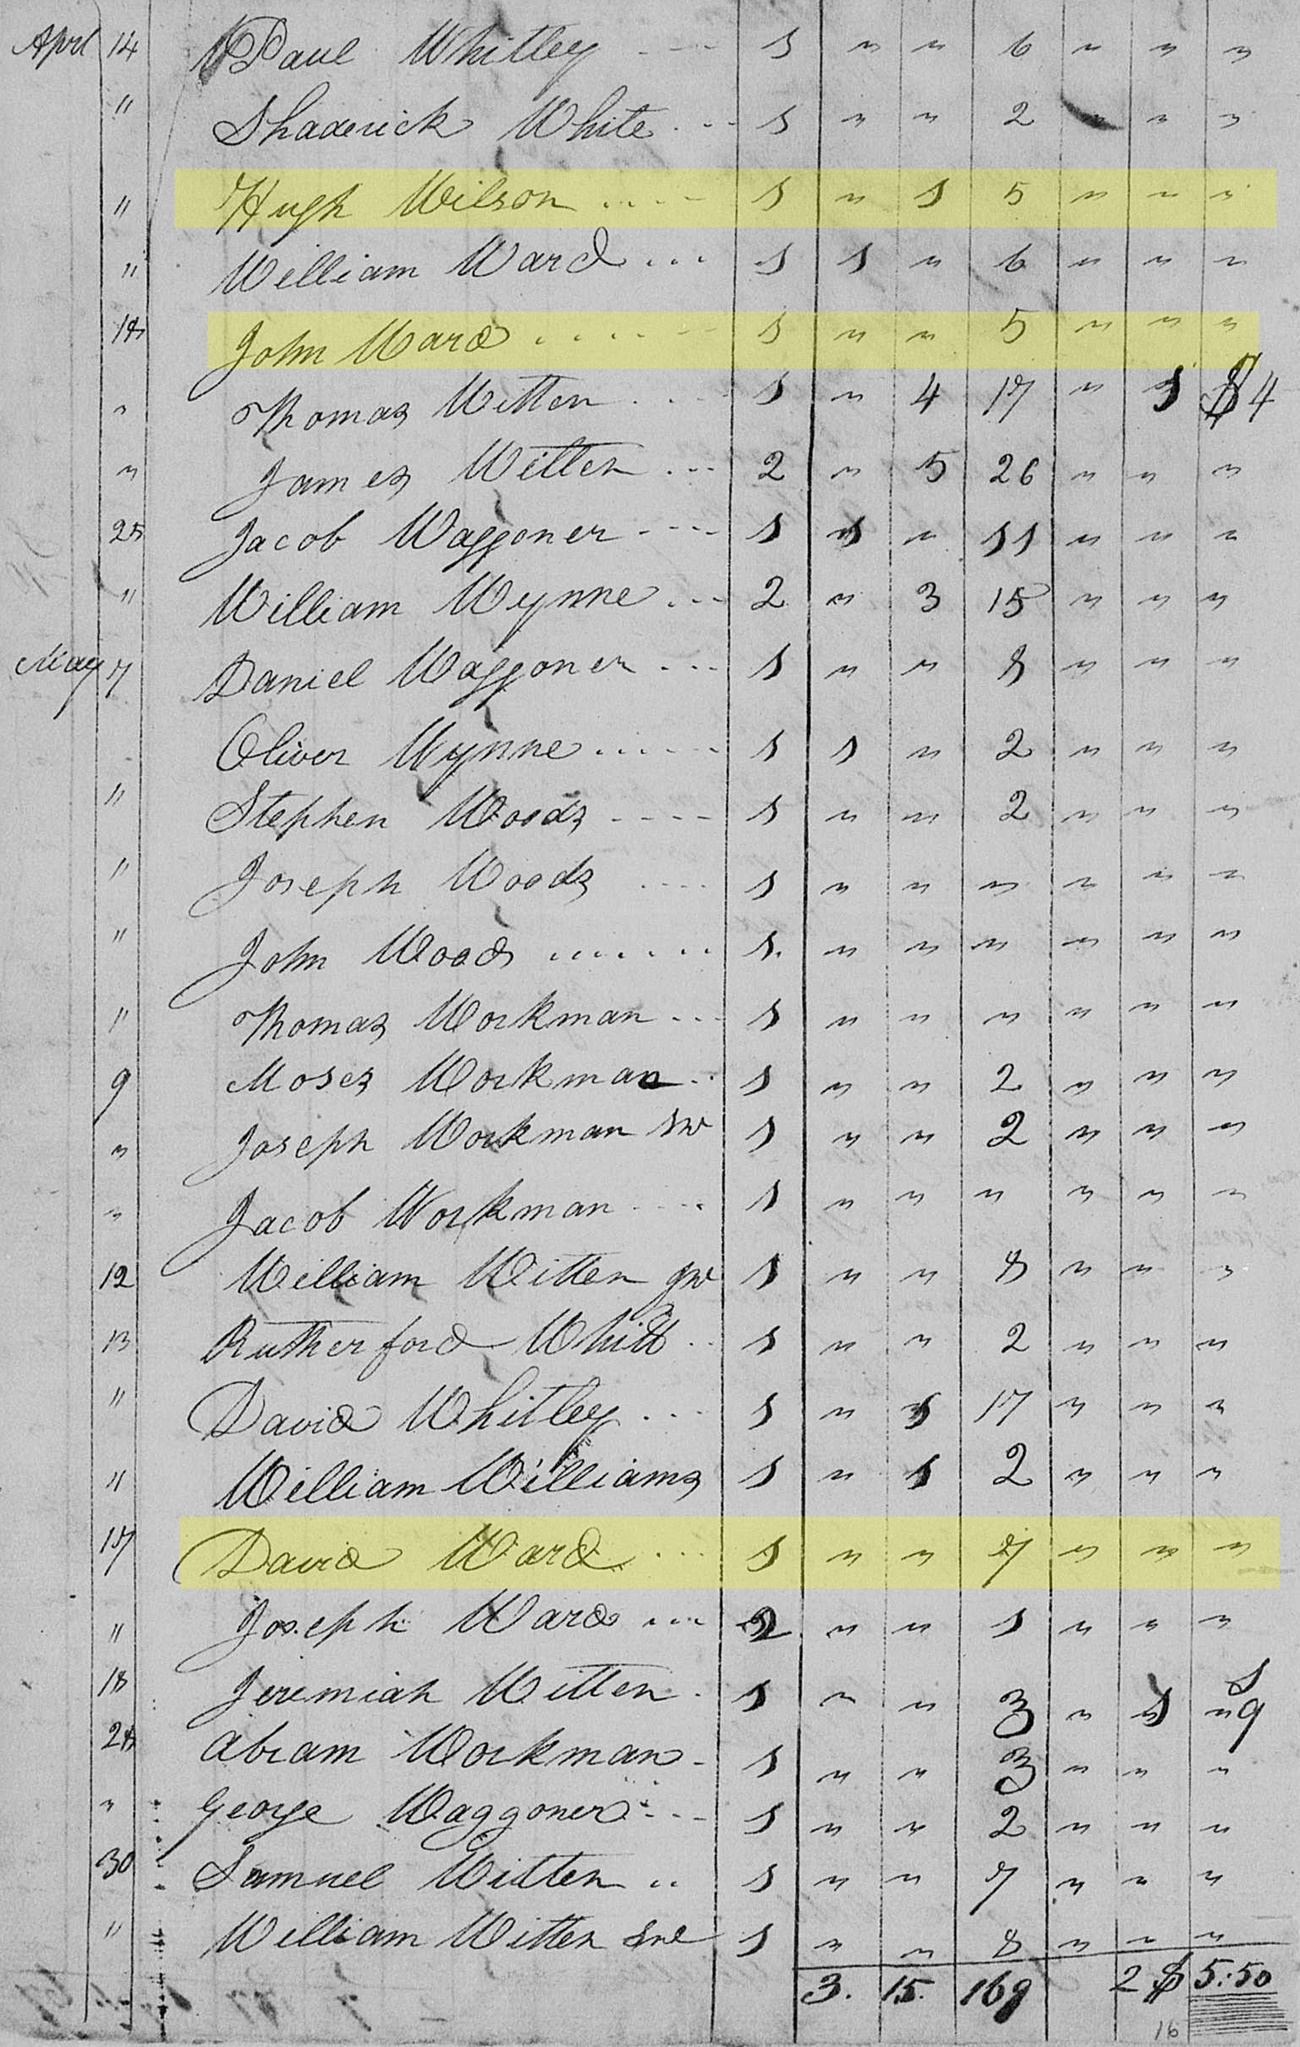 April 14 Paul Whitley - - - 1 " " 6 " " "
" Shaderick White - - - 1 " " 2 " " "
" Hugh Wilson .... 1 " 1 5 " " "
" William Ward ... 1 1 " 6 " " "
18 John Ward .... 1 " " 5 " " "
" Thomas Witten ... 1 " 4 17 " 1 4
" James Witten ... 2 " 5 26 " " "
25 Jacob Waggoner - - - 1 1 " 11 " " "
" William Wynne ... 2 " 3 15 " " "
May 7 Daniel Waggoner ... 1 " " 8 " " "
Oliver Wynne ..... 1 1 " 2 " " "
" Stephen Woods - - - - 1 " " 2 " " "
" Joseph Woods .... 1 " " " " " "
" John Woods ....... 1. " " " " " "
" Thomas Workman ... 1 " " " " " "
9 Moses Workman .. 1 " " 2 " " "
" Joseph Workman snr 1 " " 2 " " "
" Jacob Workman .... 1 " " " " " "
12 William Witten jnr 1 " " 8 " " "
13 Rutherford Whitt .. 1 " " 2 " " "
" David Whitley ... 1 " 1 17 " " "
" William Williams 1 " 1 2 " " "
17 David Ward ... 1 " " 7 " " "
" Joseph Ward ... 2 " " 1 " " "
18 Jeremiah Witten . 1 " " 3 " 1 "
28 Abram Workman - 1 " " 3 " " "
" George Waggoner - - - 1 " " 2 " " "
30 Samuel Witten .. 1 " " 7 " " "
" William Witten Snr 1 " " 8 " " "
3. 15. 169 2 $ 5:50
16